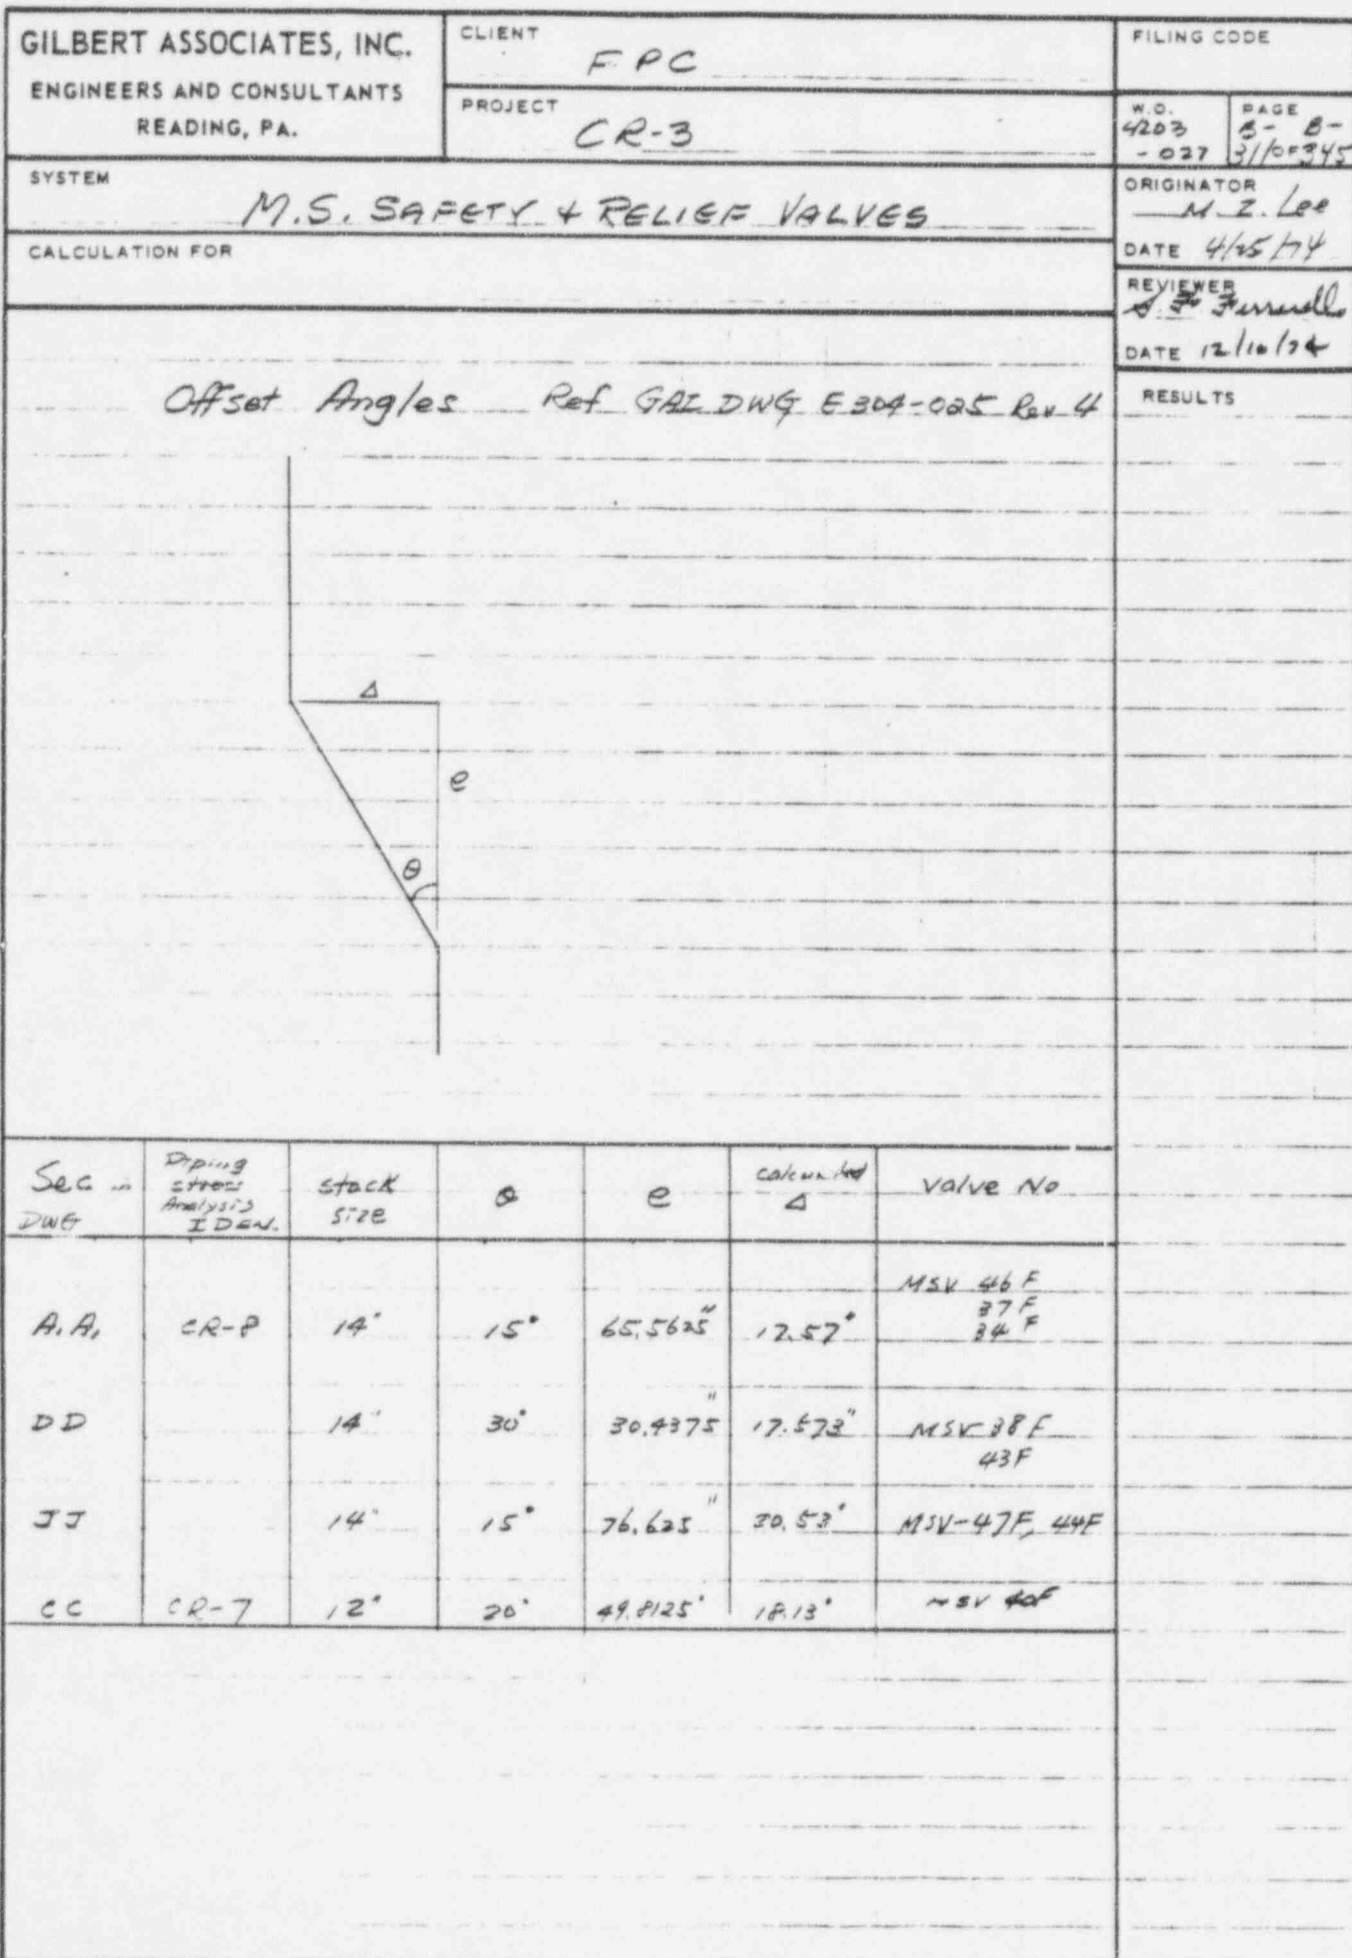 GILBERT ASSOCIATES, INC.
ENGINEERS AND CONSULTANTS
READING, PA.
CLIENT
FPC
PROJECT
CR-3
FILING CODE
W.O.
4203
- 027
PAGE
B- B-
311 OF 345
SYSTEM
M.S. SAFETY + RELIEF VALVES
ORIGINATOR
M. Z. Lee
DATE 4/25/74
CALCULATION FOR
REVIEWER
DATE 12/10/74
RESULTS
Offset Angles Ref GAI DWG E304-025 Rev 4
Δ
e
θ
Sec in DWG
Piping stress Analysis IDEN.
stack size
θ
e
calculated Δ
Valve No
A.A. CR-8 14" 15° 65.5625" 17.57" MSV 46 F
37 F
34 F
DD 14" 30° 30.4375" 17.573" MSV 38 F
43F
JJ 14" 15° 76.625" 20.53" MSV-47F, 44F
CC CR-7 12" 20° 49.8125" 18.13" MSV 40F